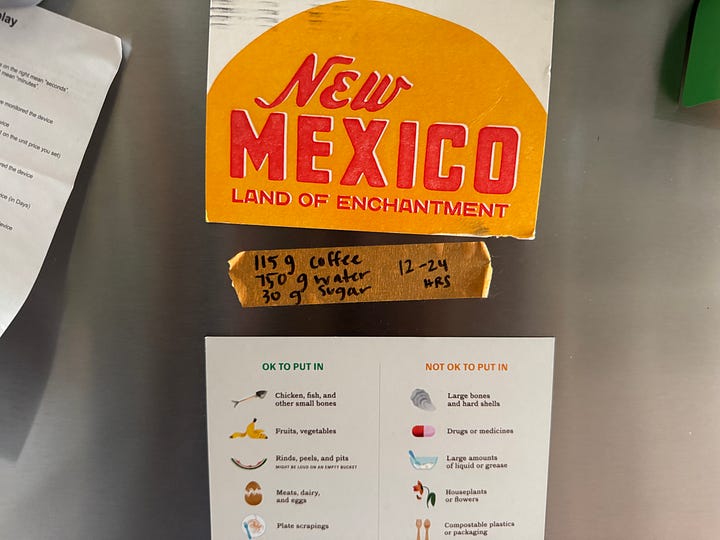 play
on the right mean "seconds"
mean "minutes"
monitored the device
on the unit price you set)
the device
(in Days)
device
New
MEXICO
LAND OF ENCHANTMENT
115 g coffee
750 g water
30 g sugar
12-24
HRS
OK TO PUT IN
Chicken, fish, and
other small bones
Fruits, vegetables
Rinds, peels, and pits
MIGHT BE LOUD ON AN EMPTY BUCKET
Meats, dairy,
and eggs
Plate scrapings
NOT OK TO PUT IN
Large bones
and hard shells
Drugs or medicines
Large amounts
of liquid or grease
Houseplants
or flowers
Compostable plastics
or packaging